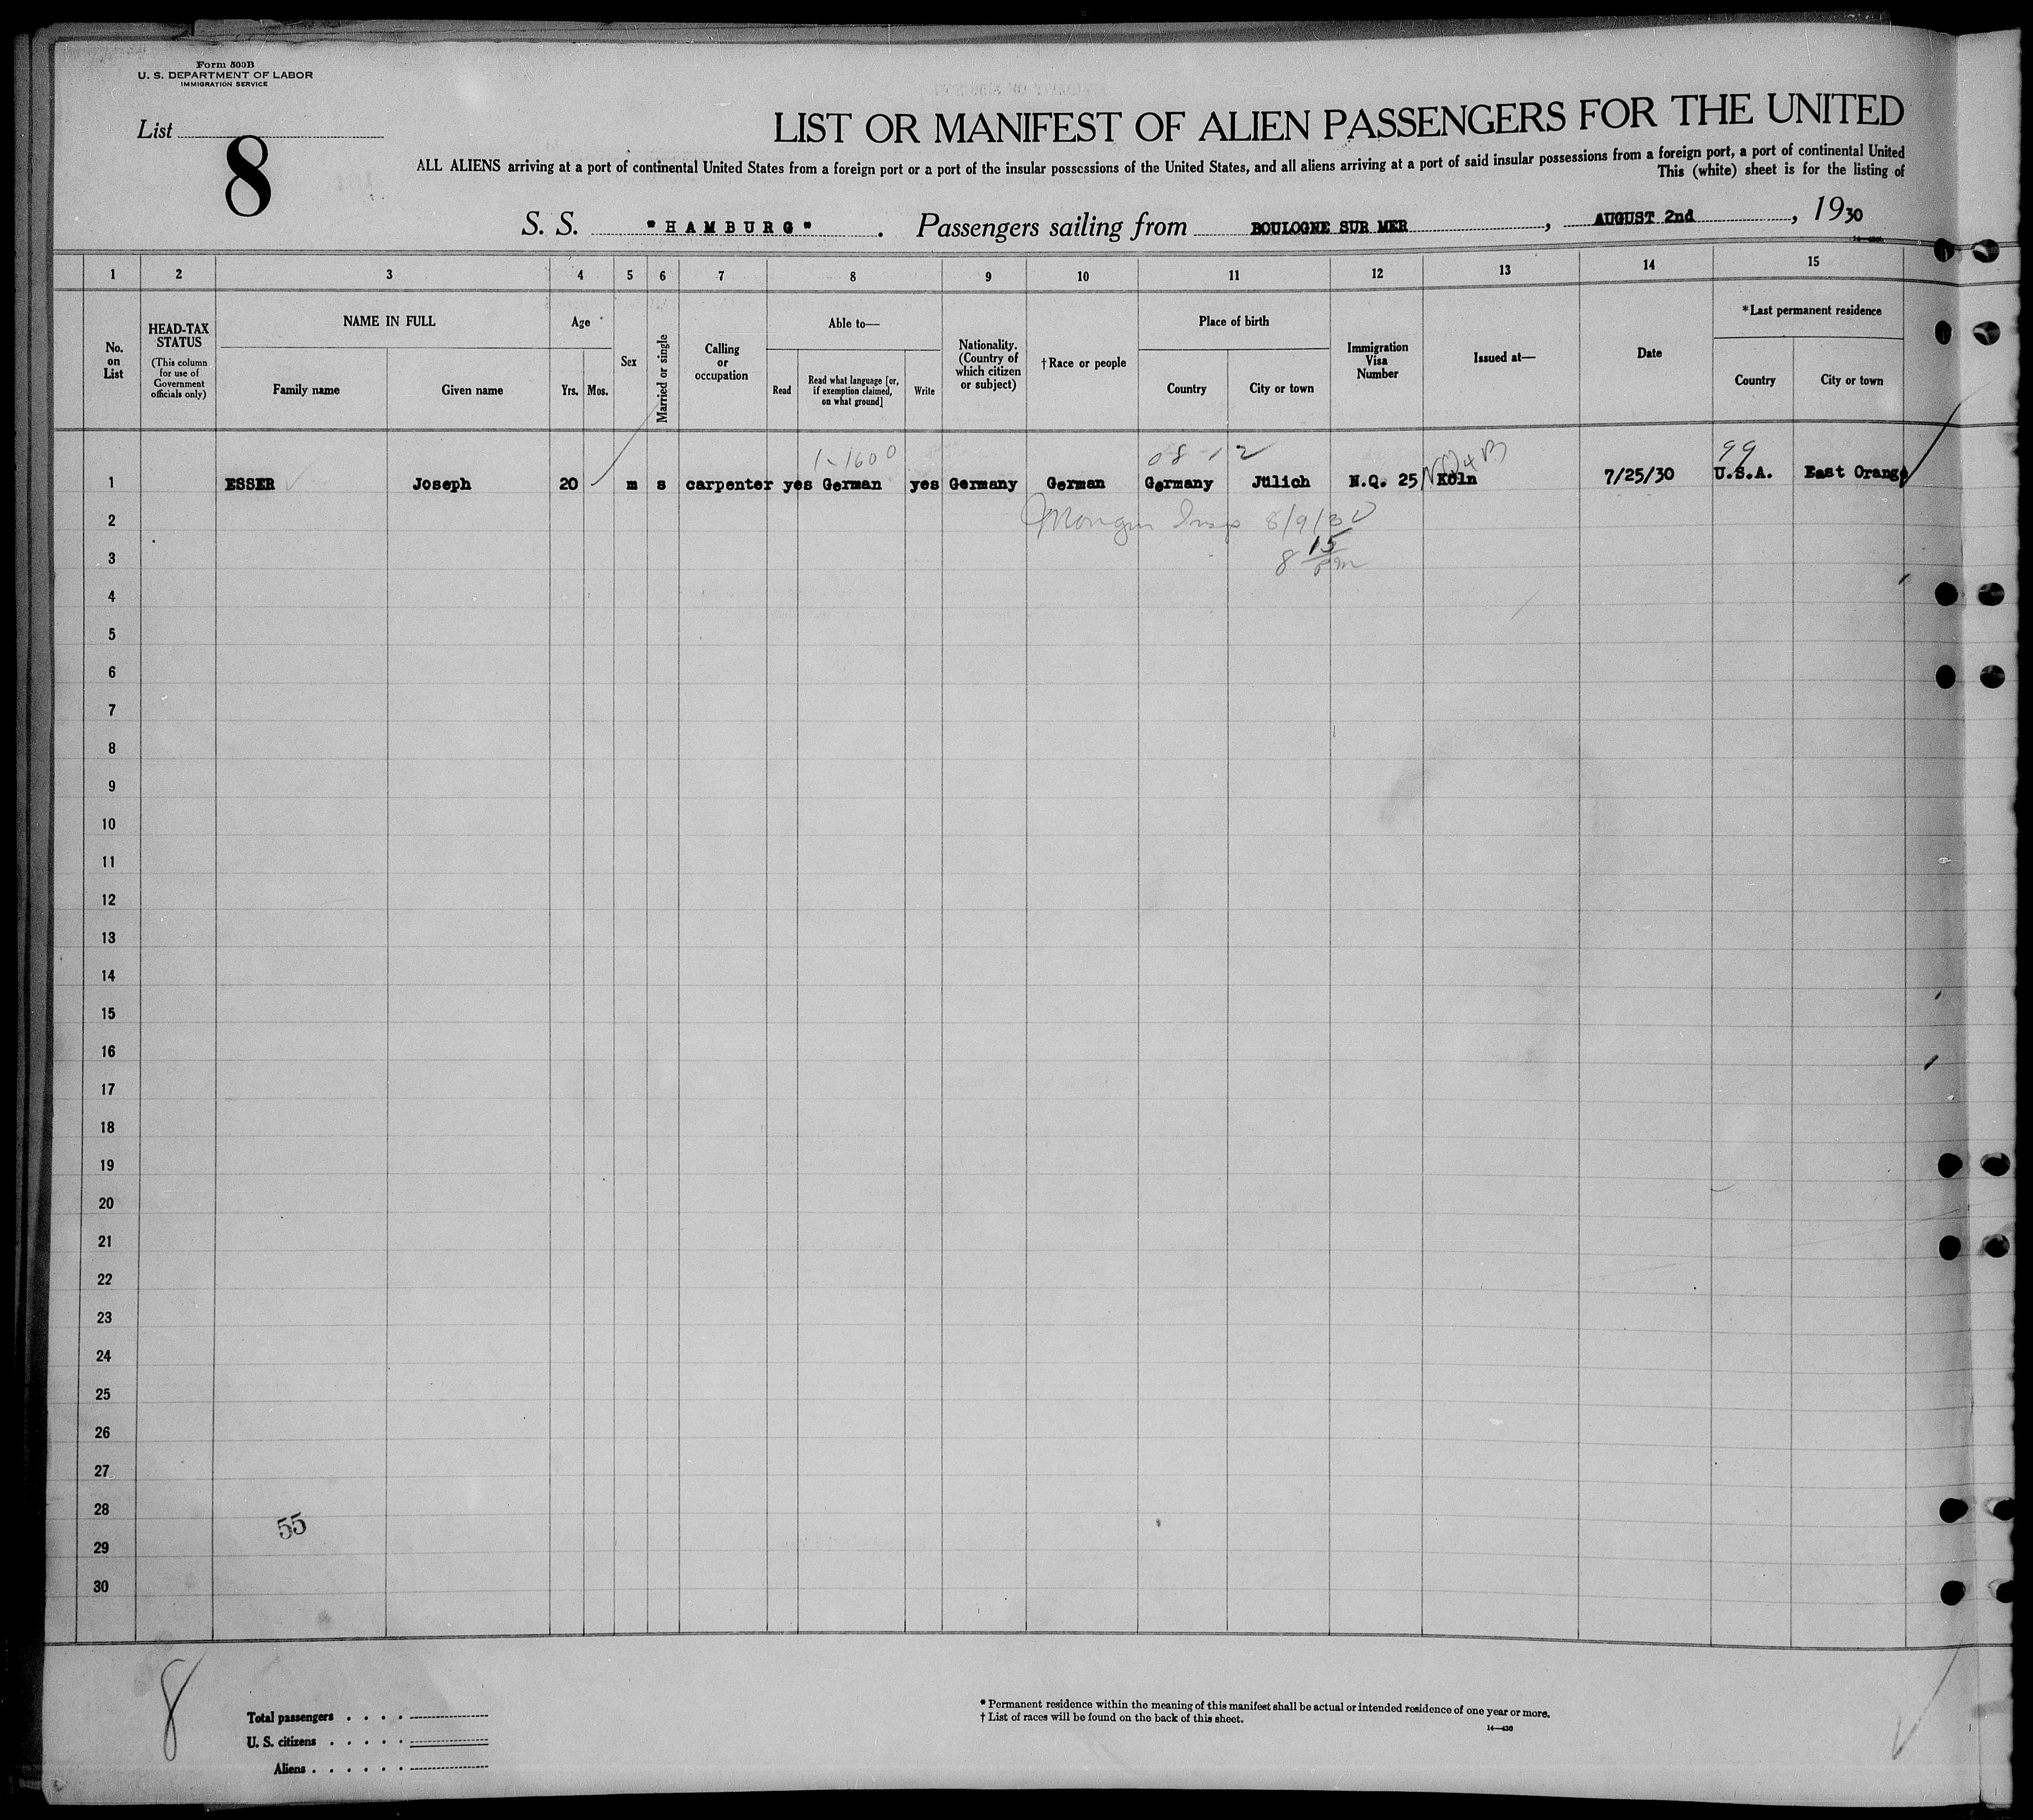 Form 500B
U. S. DEPARTMENT OF LABOR
IMMIGRATION SERVICE
List
8
LIST OR MANIFEST OF ALIEN PASSENGERS FOR THE UNITED
ALL ALIENS arriving at a port of continental United States from a foreign port or a port of the insular possessions of the United States, and all aliens arriving at a port of said insular possessions from a foreign port, a port of continental United
This (white) sheet is for the listing of
S. S. "HAMBURG". Passengers sailing from BOULOGNE SUR MER, AUGUST 2nd, 1930
1 2 3 4 5 6 7 8 9 10 11 12 13 14 15
No. on List
HEAD-TAX STATUS
(This column for use of Government officials only)
NAME IN FULL
Family name
Given name
Age
Yrs. Mos.
Sex
Married or single
Calling or occupation
Able to—
Read
Read what language [or, if exemption claimed, on what ground]
Write
Nationality. (Country of which citizen or subject)
†Race or people
Place of birth
Country
City or town
Immigration Visa Number
Issued at—
Date
*Last permanent residence
Country
City or town
1-1600 08 12 99
1 ESSER Joseph 20 m s carpenter yes German yes Germany German Germany Jülich N.Q. 25 Köln 7/25/30 U.S.A. East Orange
2 Insp 8/9/30
3 8 15 pm
4
5
6
7
8
9
10
11
12
13
14
15
16
17
18
19
20
21
22
23
24
25
26
27
28
55
29
30
8
Total passengers . . . .
U. S. citizens . . . . .
Aliens . . . . . .
* Permanent residence within the meaning of this manifest shall be actual or intended residence of one year or more.
† List of races will be found on the back of this sheet.
14—430